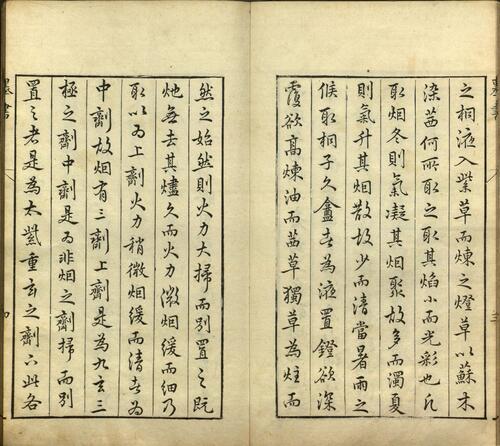 之桐液入紫草而煉之燈草以蘇木
染茜何所取之取其焰小而光彩也凡
取烟冬則氣凝其烟聚故多而濁夏
則氣升其烟散故少而清當暑雨之
候取桐子久盦者為液置鐙欲深
覆欲高煉油而茜草獨草為炷而
然之始然則火力大掃而別置之既
灺每去其燼久而火力微烟緩而細乃
取以为上劑火力稍微烟緩而清者为
中劑故烟有三劑上劑是為九玄三
極之劑中劑是为非烟之劑掃而別
置之者是為太紫重玄之劑六此各
墨書